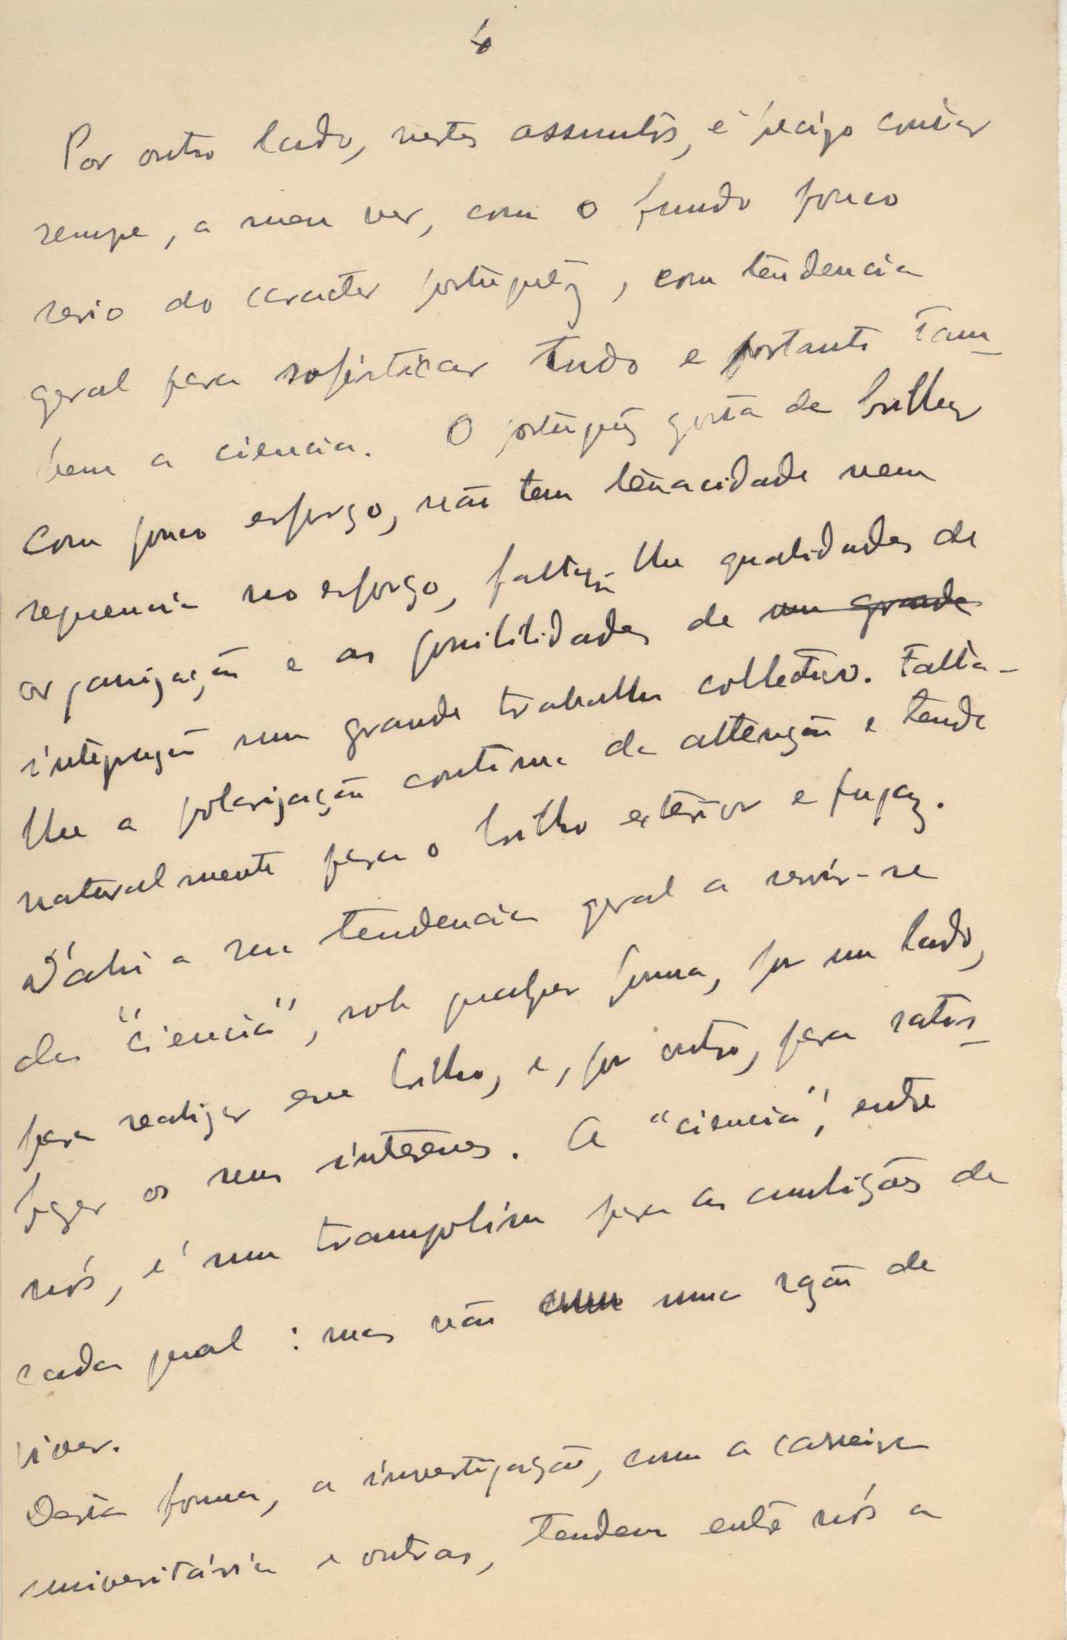 6
Por outro lado, nestes assuntos, é preciso contar
sempre, a meu ver, com o fundo pouco
serio do caracter português, com tendencia
geral para sofisticar tudo e portanto tam-
bem a ciencia. O português gosta de brilhar
com pouco esforço, não tem tenacidade nem
sequencia no esforço, faltam-lhe qualidades de
organização e as possibilidades de um grande
integração num grande trabalho collectivo. Falta-
lhe a polarização continua da attenção e tende
naturalmente para o brilho exterior e fugaz.
D'ahi a sua tendencia geral a servir-se
da "ciencia", sob qualquer forma, por um lado,
para realizar esse brilho, e, por outro, para satis-
fazer os seus interesses. A "ciencia", entre
nós, é um trampolim para as ambições de
cada qual: mas não uma razão de
viver.
Desta forma, a investigação, como a carreira
universitária e outras, tendem entre nós a